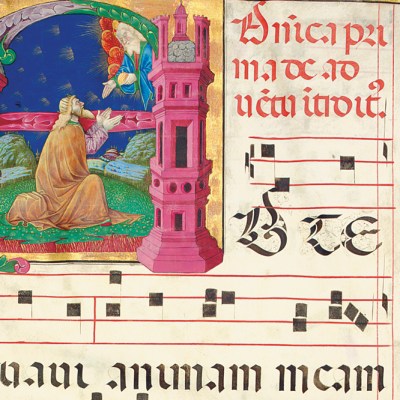 Dn̄ica pri
ma de ad
uētu ītroitꝰ.
D TE
uaui animam meam